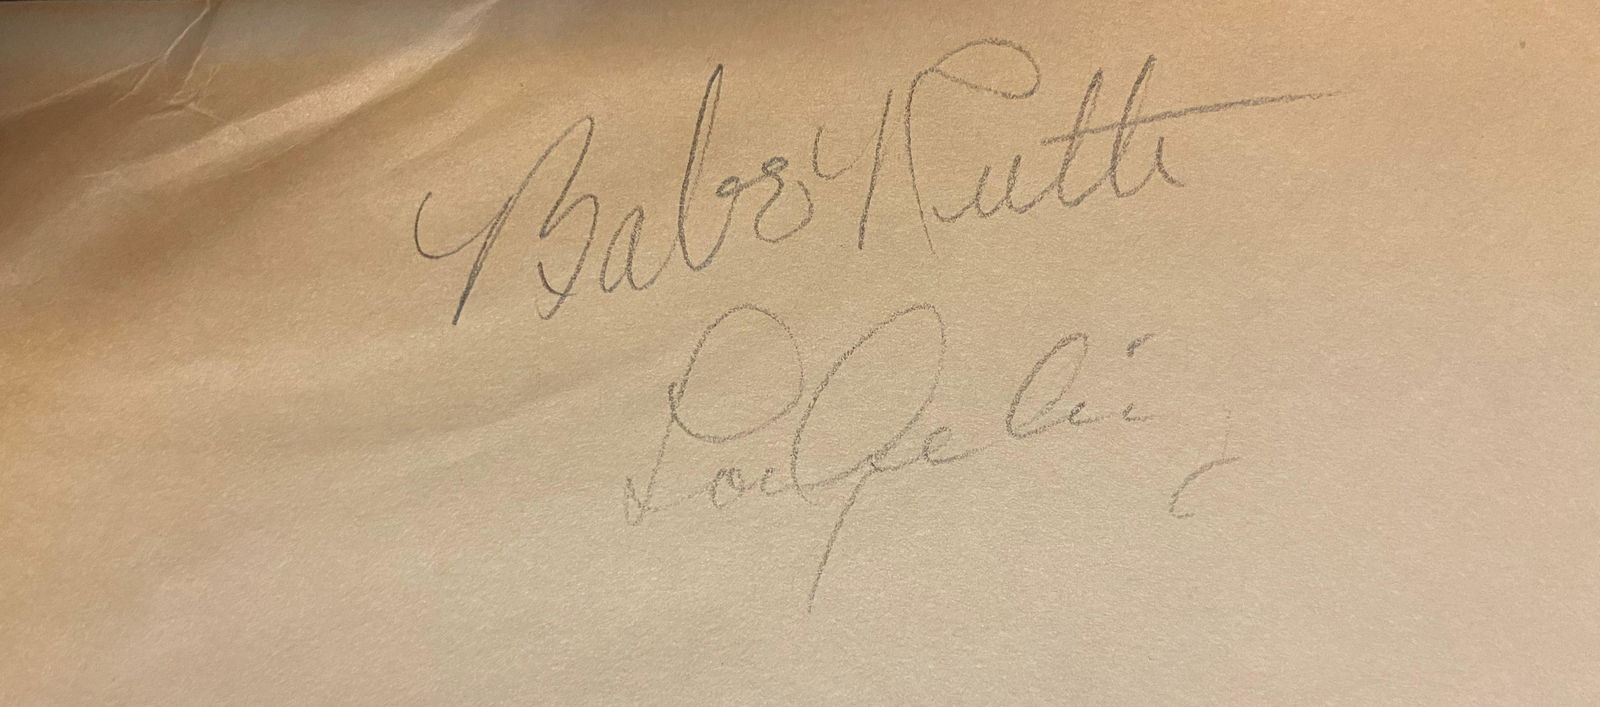 Babe Ruth
Lou Gehrig